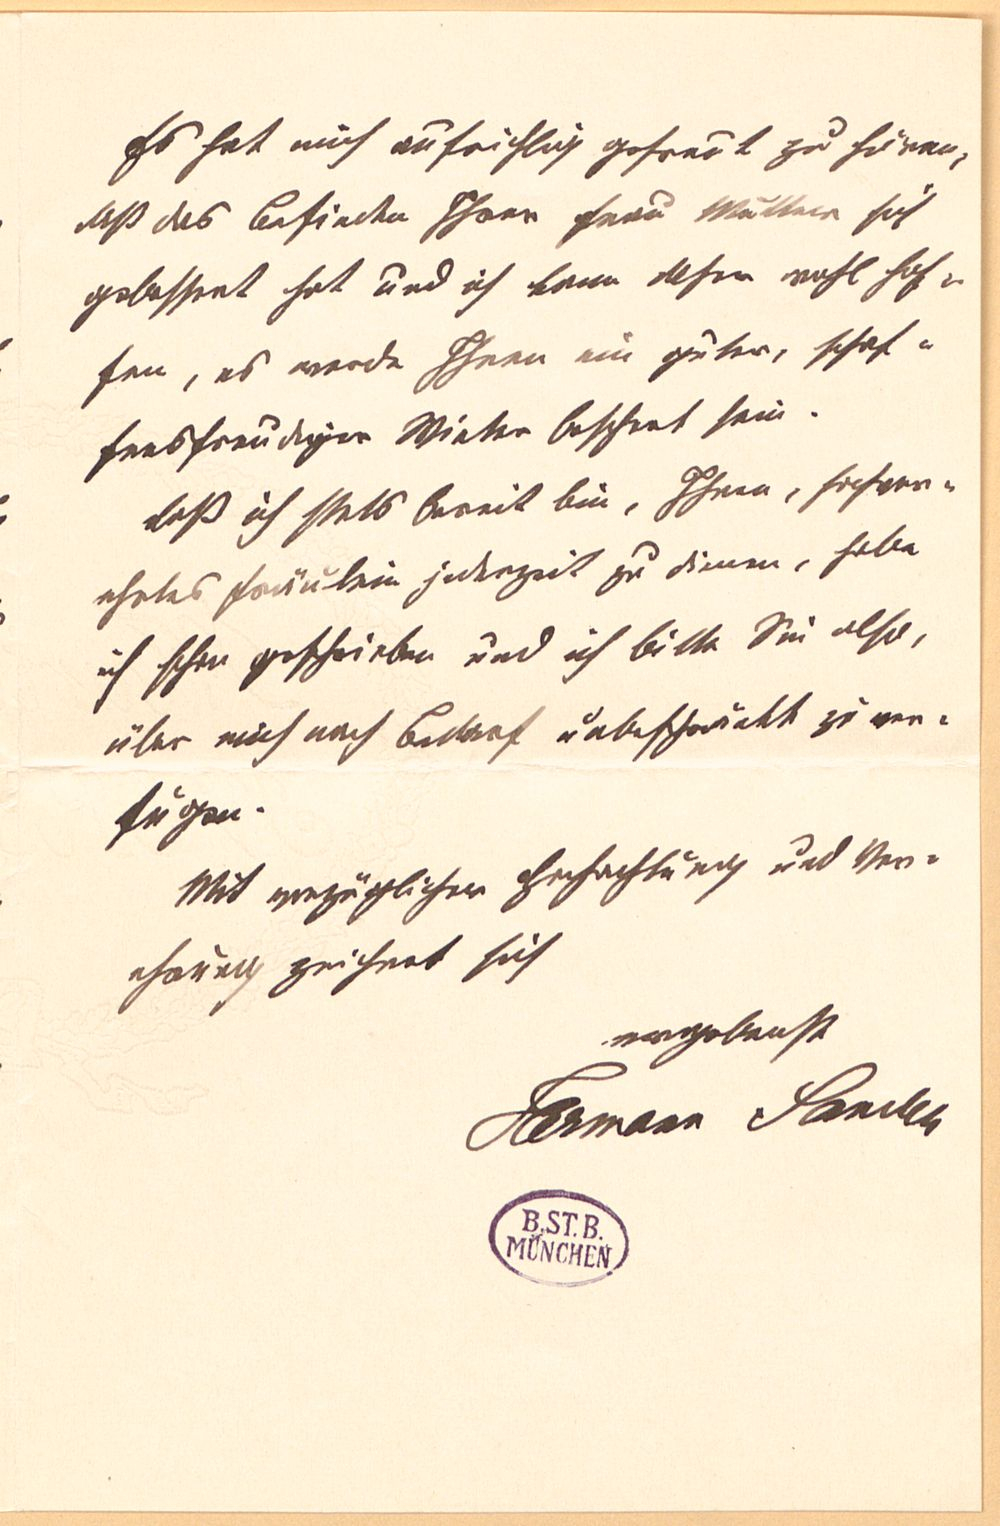 Es hat mich aufrichtig gefreut zu hören,
daß das Befinden Ihrer Frau Mutter sich
gebessert hat und ich kann daher wohl hof-
fen, es werde Ihnen ein guter, schaf-
fensfreudiger Winter beschert sein.
Daß ich stets bereit bin, Ihnen, hochver-
ehrtes Fräulein jederzeit zu dienen, habe
ich schon geschrieben und ich bitte Sie also,
über mich nach Bedarf unbeschränkt zu ver-
fügen.
Mit vorzüglicher Hochachtung und Ver-
ehrung zeichnet sich
ergebenst
Hermann
B.ST.B.
MÜNCHEN